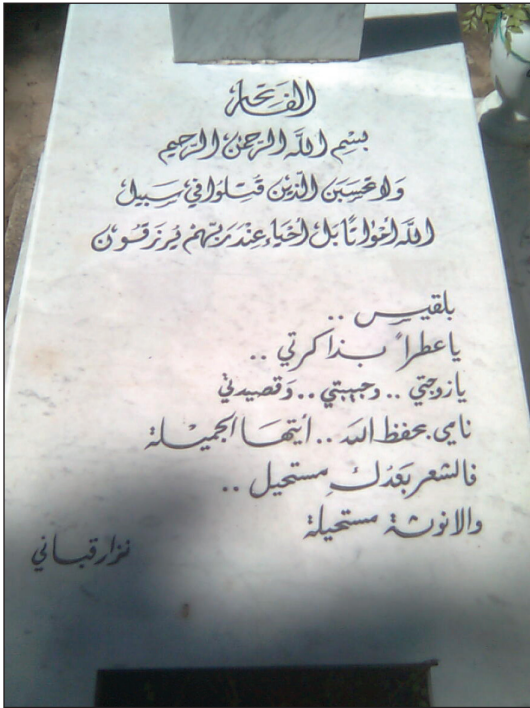 الفاتحة
بسم الله الرحمن الرحيم
ولا تحسبن الذين قتلوا في سبيل
الله أمواتًا بل أحياء عند ربهم يرزقون
بلقيس ..
يا عطراً بذاكرتي ..
يا زوجتي .. وحبيبتي .. وقصيدتي
نامي بحفظ الله .. أيتها الجميلة
فالشعر بعدك مستحيل ..
والانوثة مستحيلة
نزار قباني